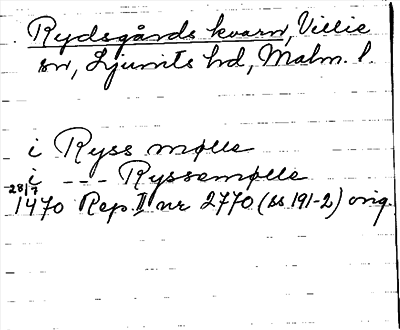 Rydsgårds kvarn, Villie
sn, Ljunits hd, Malm. l.
i Ryss mølle
i --- Ryssemølle
28/7 1470 Rep. II nr 2770 (ss 191-2) orig.